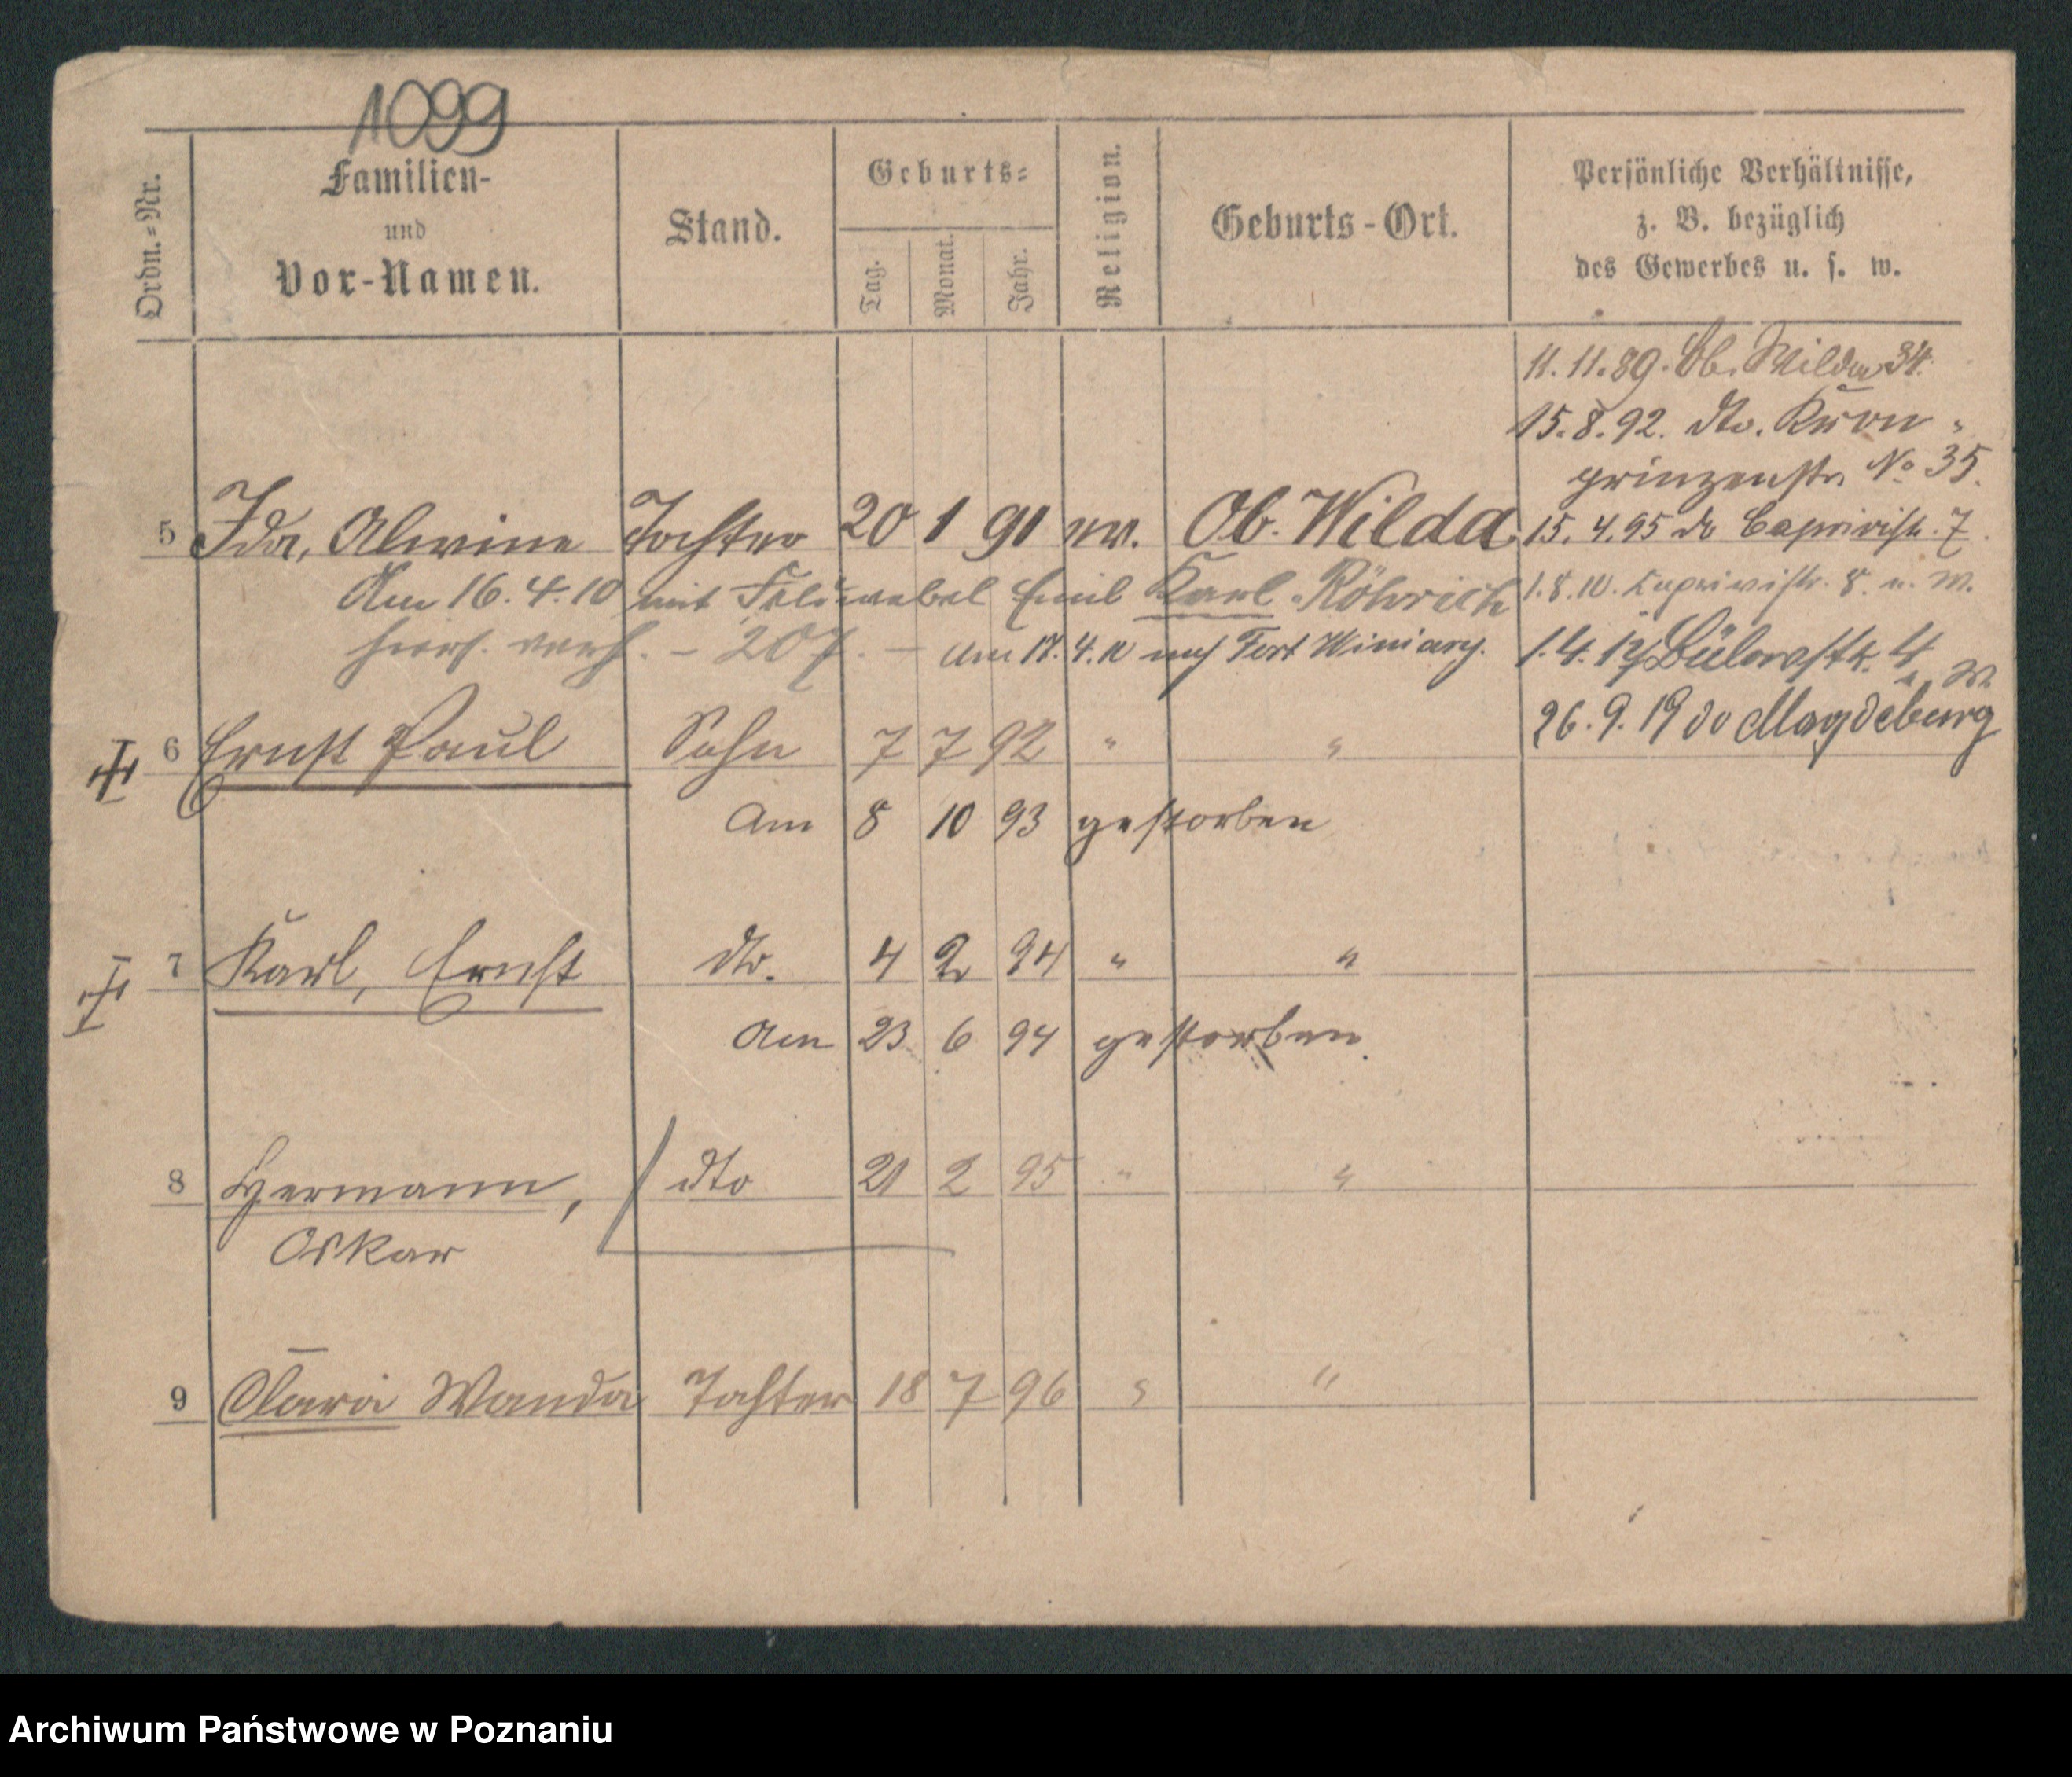 1099
Ordn.-Nr.
Familien-
und
Vor-Namen.
Stand.
Geburts-
Tag.
Monat.
Jahr.
Religion.
Geburts-Ort.
Persönliche Verhältnisse,
z. B. bezüglich
des Gewerbes u. s. w.
11.11.89. Ob. Wilda 34.
15.8.92. dto. Kron-
prinzenstr. No 35.
5 Ida, Alwine Tochter 20 1 91 ev. Ob. Wilda
15.4.95 do Caprivistr. 7
Am 16.4.10 mit Feldwebel Emil Karl Röhrich
1.8.10. Caprivistr. 8. n. W.
hiers. verh. - 207. - Am 17.4.10 nach Fort Winiary.
1.4.12 Bülowstr. 4 n. W.
26.9.19 do Magdeburg
6 Ernst Paul Sohn 7 7 92 " "
Am 8 10 93 gestorben
7 Karl, Ernst dto. 4 2 94 " "
Am 23 6 94 gestorben.
8 Hermann, dto 21 2 95 " "
Oskar
9 Clara Wanda Tochter 18 7 96 " "
Archiwum Państwowe w Poznaniu